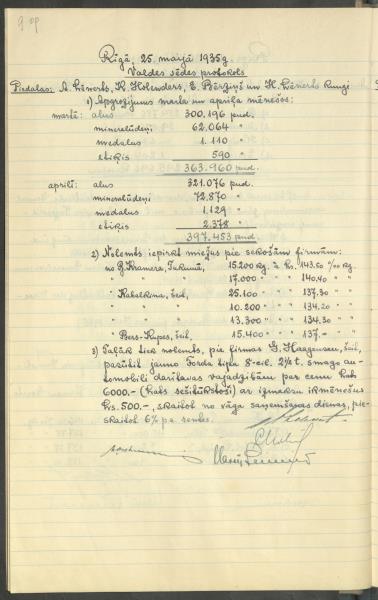 9 op
Rīgā, 25. maijā 1935 g.
Valdes sēdes protokols
Piedalās: A. Lēnerts, K. Holenders, E. Bērziņš un H. Lēnerts kungi
1) Apgrozījums marta un aprīļa mēnešos:
martā: alus 300.196 pud.
minerālūdeņi 62.064 "
medalus 1.110 "
etiķis 590 "
363.960 pud.
aprīlī: alus 321.076 pud.
minerālūdeņi 72.870 "
medalus 1.129 "
etiķis 2.378 "
397.453 pud.
2) Nolemts iepirkt miežus pie sekošām firmām:
no G. Kramera, Tukumā, 15.200 kg. à Ls. 143.50 %o kg.
" " " 17.000 " " " 140.40 " "
" Kabelkina, šeit, 25.100 " " " 137.30 " "
" " " 10.200 " " " 134.20 " "
" " " 13.300 " " " 134.30 " "
" Bers-Kupes, šeit, 15.400 " " " 137.- " "
3) Tālāk tiek nolemts, pie firmas G. Haagensen, šeit,
pasūtīt jauno Forda tipa 8-cil. 2½ t. smago au-
tomobīli darītavas vajadzībām par cenu Latu
6000.- (Latu seši tūkstoši) ar izmaksu ikmēnešus
Ls. 500.-, skaitot no vāģa saņemšanas dienas, pie-
skaitot 6% pa. rentes.